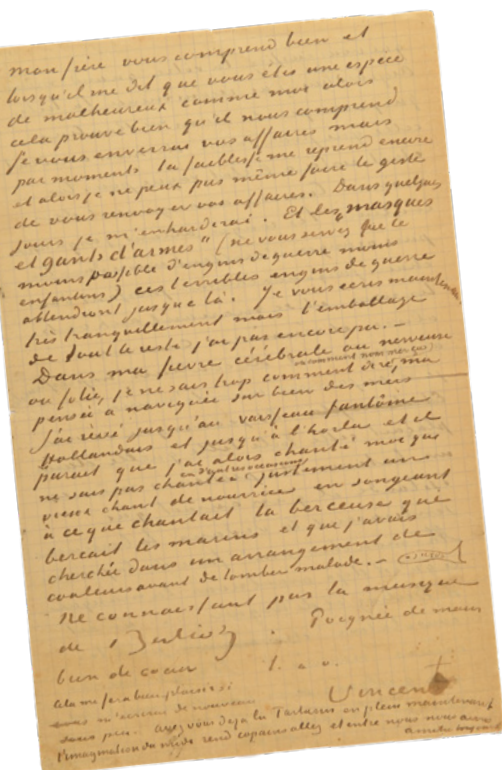 mon frère vous comprend bien et
lorsqu'il me dit que vous êtes une espèce
de malheureux comme moi alors
cela prouve bien qu'il nous comprend
Je vous enverrai vos affaires mais
par moments la faiblesse me reprend encore
et alors je ne peux pas même faire le geste
de vous renvoyer vos affaires. Dans quelques
jours je m'enhardirai. Et les „masques
et gants d'armes" (ne vous servez que le
moins possible d'engins de guerre moins
enfantins) ces terribles engins de guerre
attendront jusque là. Je vous écris maintenant
très tranquillement mais l'emballage
de tout le reste j'ai pas encore pu. –
Dans ma fièvre cérébrale ou nerveuse
ou folie, je ne sais trop comment dire, ma
ou comment nommer ça
pensée a navigué sur bien des mers
J'ai rêvé jusqu'au vaisseau fantôme
Hollandais et jusqu'à l'horla et il
paraît que j'ai alors chanté moi qui
ne sais pas chanter justement un
en d'autres occasions
vieux chant de nourrice en songeant
à ce que chantait la berceuse qui
berçait les marins et que j'avais
cherchée dans un arrangement de
couleurs avant de tomber malade. –
Ne connaissant pas la musique
de Berlioz. Poignée de main
bien de cœur t. à v.
Vincent
cela me fera bien plaisir si
vous m'écrivez de nouveau
sous peu. Avez vous déjà lu Tartarin en plein maintenant
l'imagination du midi rend copains allez et entre nous nous avons
amitié toujours